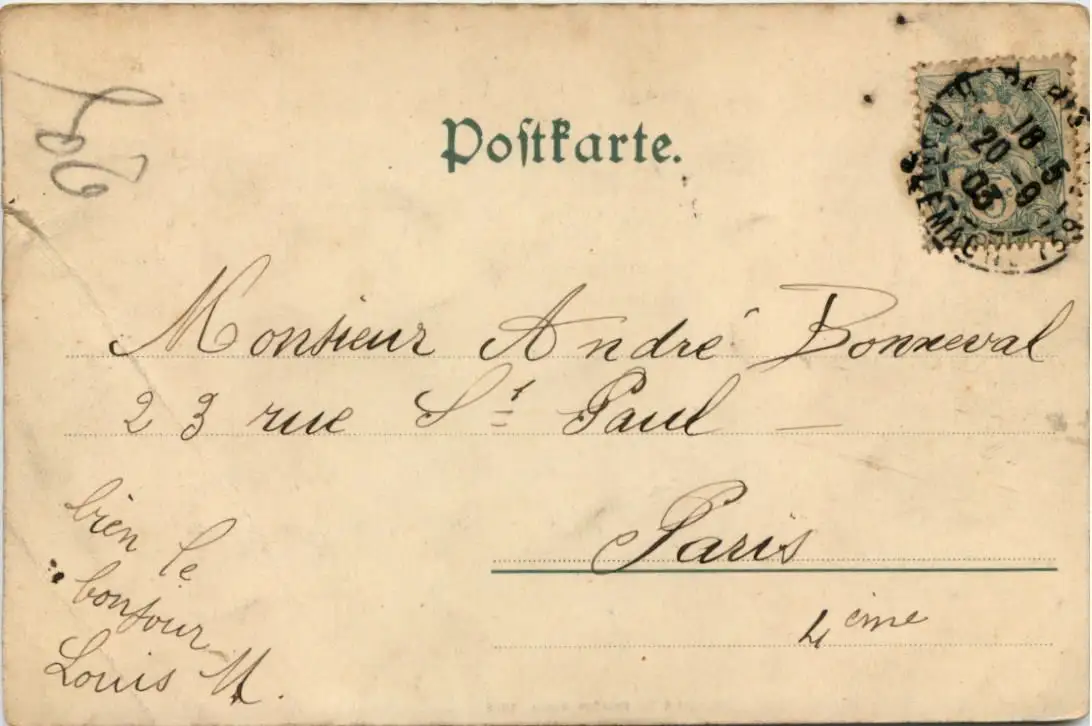 Postkarte.
PARIS
18 5
20 - 9
03
Monsieur André Bonneval
23 rue St Paul
Paris
4ème
bien le
bonjour
Louis M.